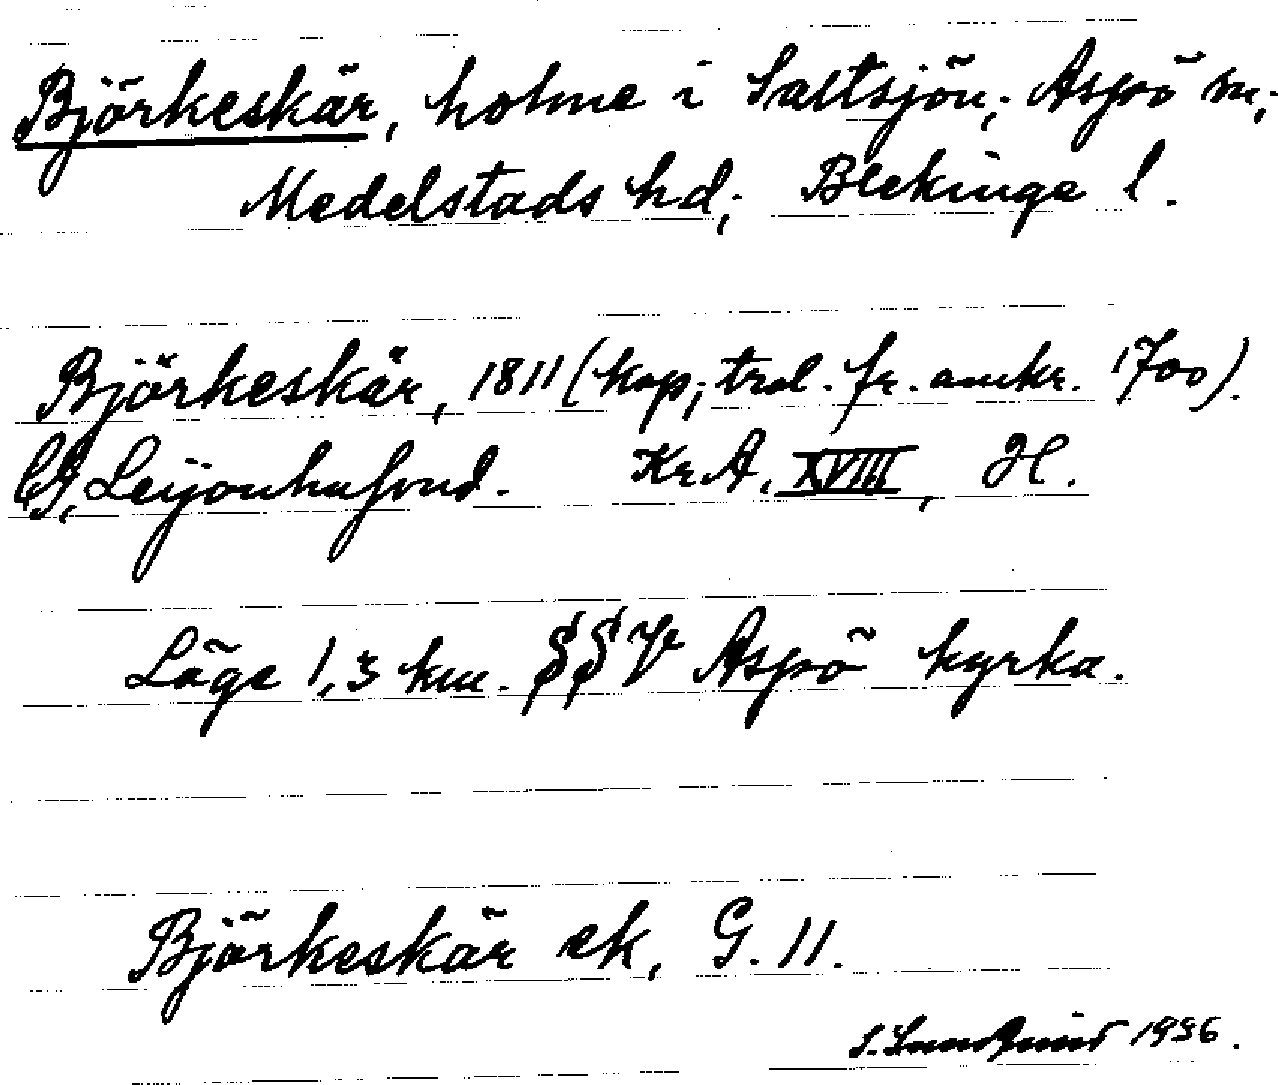 Björkeskär, holme i Saltsjön; Aspö sn;
Medelstads hd; Blekinge l.
Björkeskär, 1811 (kop; trol. fr. omkr. 1700).
CG, Leijonhufvud. Kr. A. XVIII, H.
Läge 1,3 km. SSV Aspö kyrka.
Björkeskär ek, G. 11.
S. Lundquist 1936.